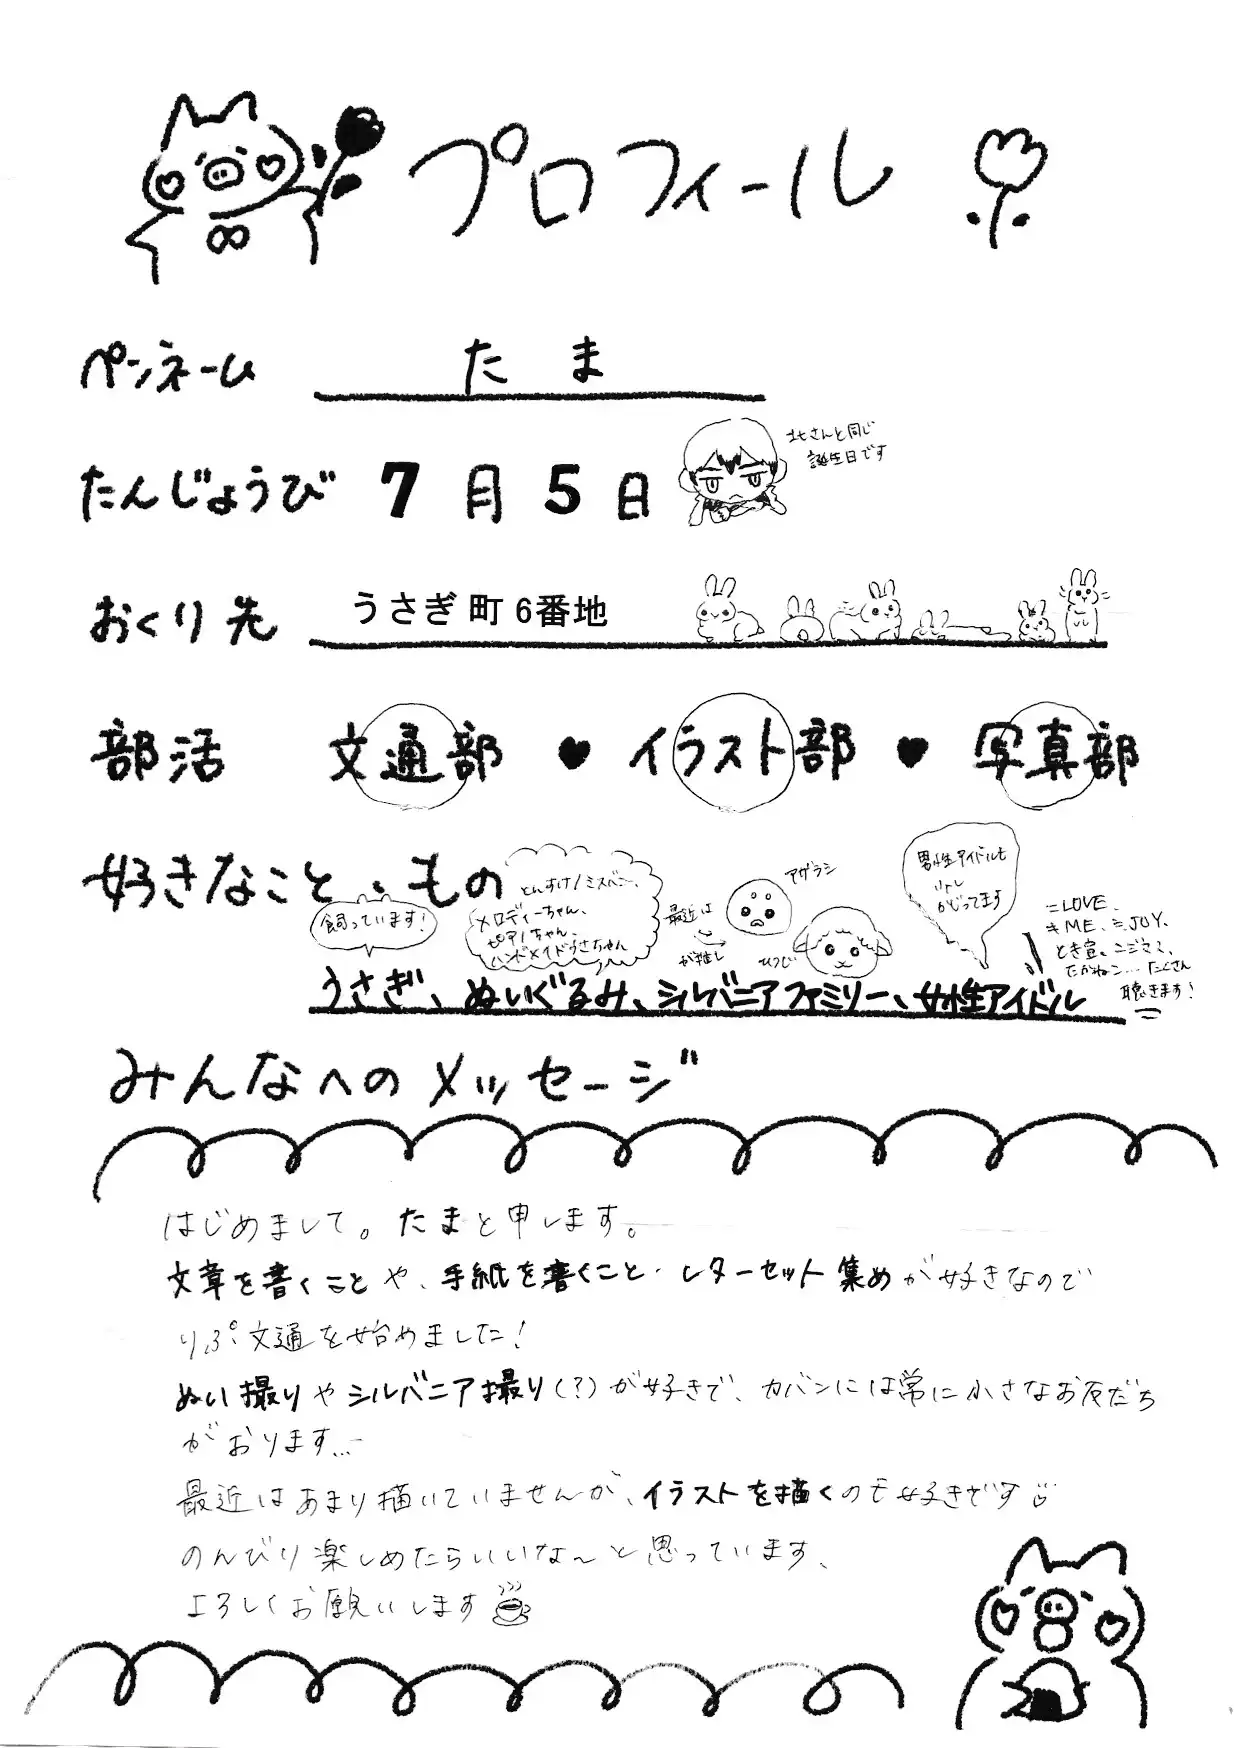 プロフィール
ペンネーム たま
たんじょうび 7月5日
北さんと同じ
誕生日です
おくり先 うさぎ町6番地
部活 文通部 ♥ イラスト部 ♥ 写真部
好きなこと、もの
飼っています!
とんすけ/ミスバニー、
メロディーちゃん、
ピアノちゃん、
ハンドメイドうさちゃん
最近は
が推し
アザラシ
ひつじ
男性アイドルも
少し
かじってます
=LOVE、
≠ME、≒JOY、
とき宣、ニジマス、
たかねこ…たくさん
聴きます!
うさぎ、ぬいぐるみ、シルバニアファミリー、女性アイドル
みんなへのメッセージ
はじめまして。たまと申します。
文章を書くことや、手紙を書くこと・レターセット集めが好きなので
りぷ文通を始めました!
ぬい撮りやシルバニア撮り(?)が好きで、カバンには常に小さなお友だち
がおります…
最近はあまり描いていませんが、イラストを描くのも好きです
のんびり楽しめたらいいな〜と思っています、
よろしくお願いします